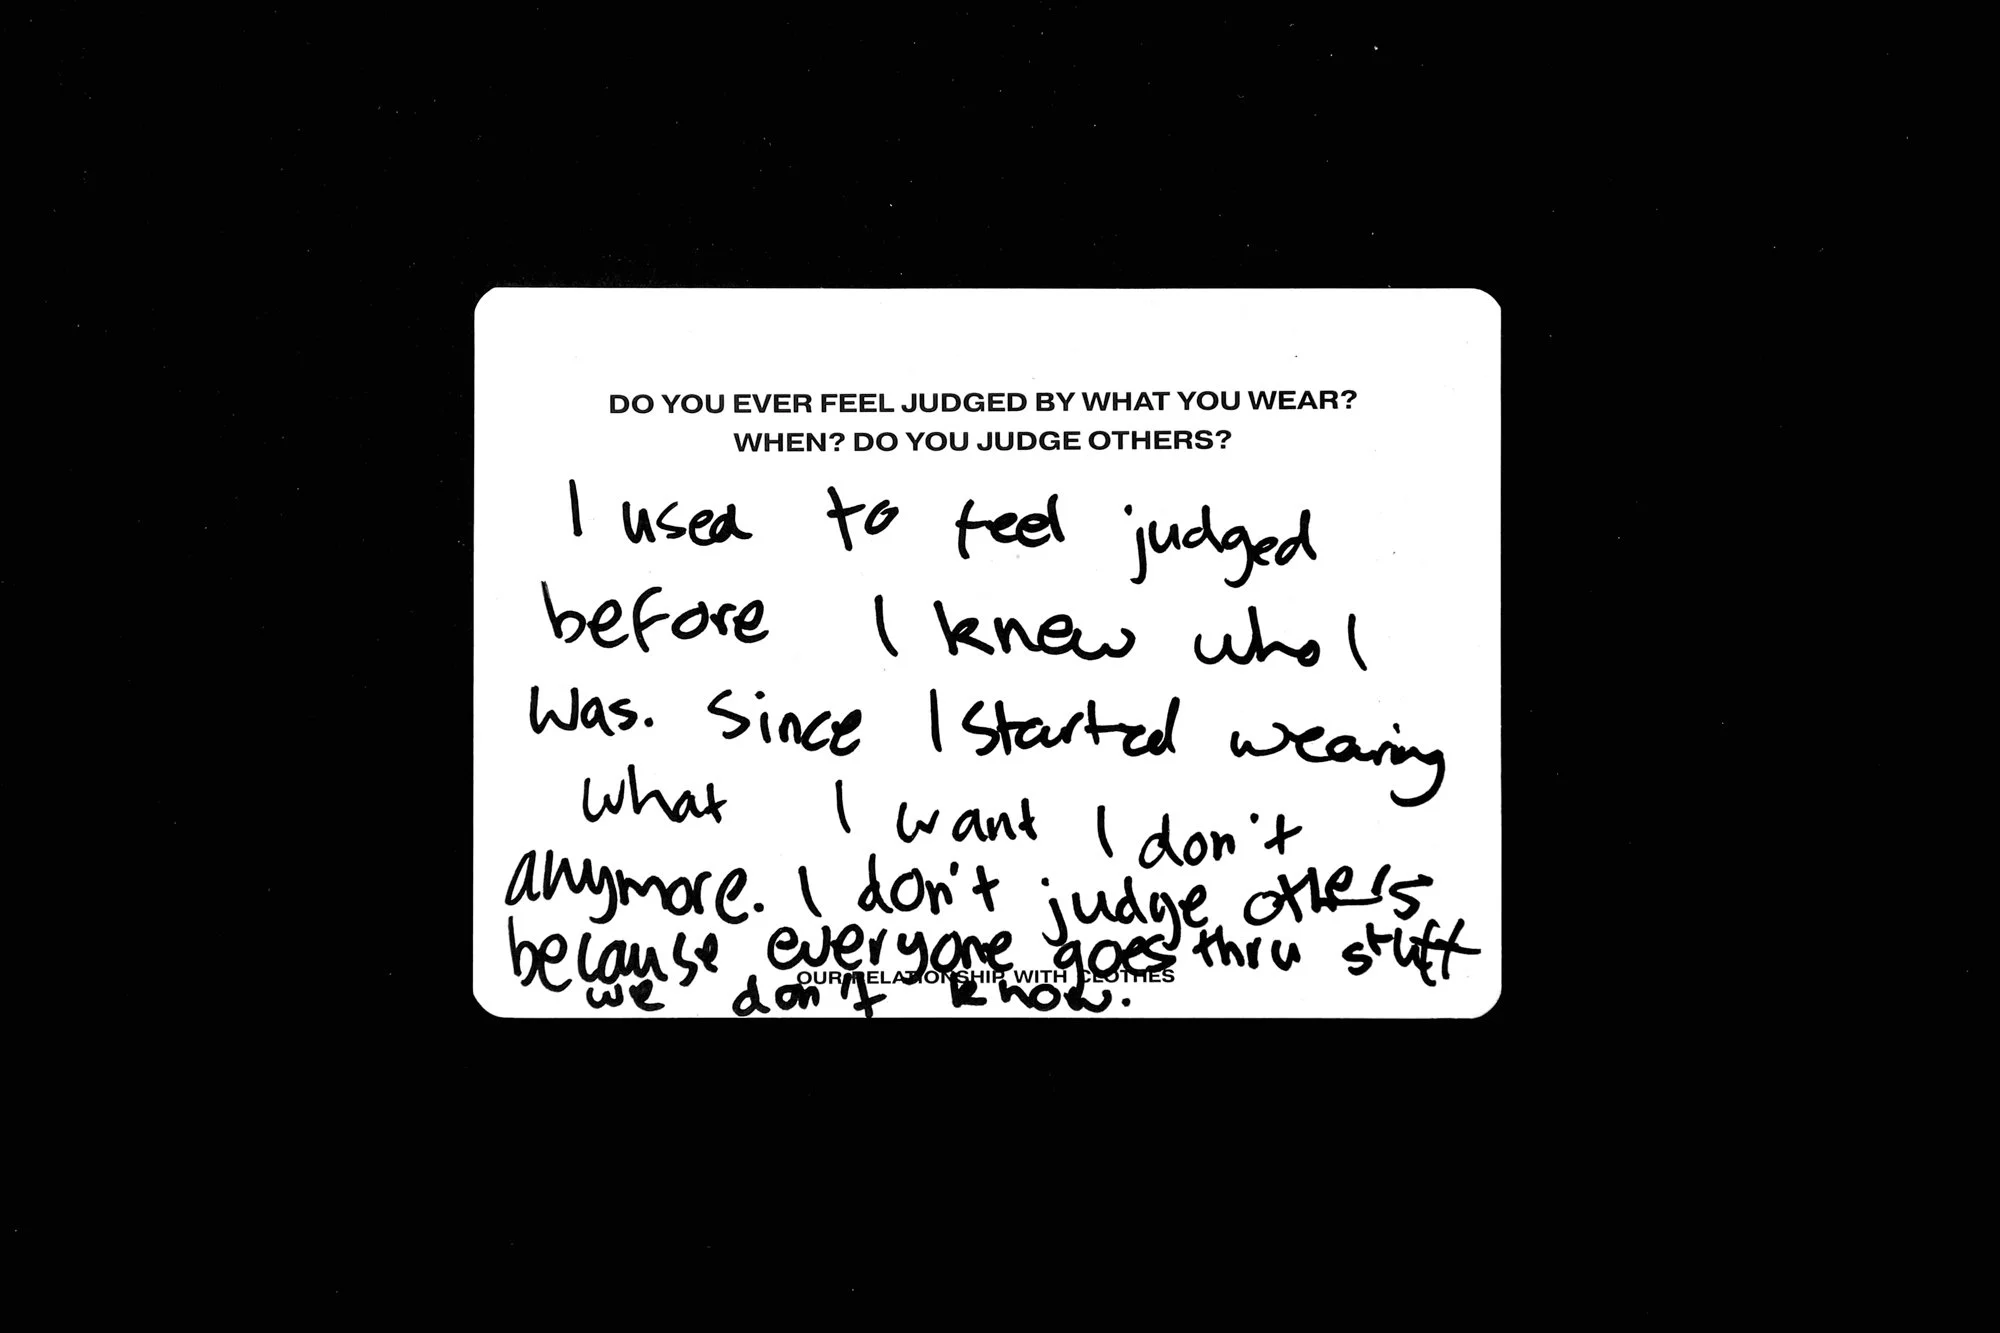 DO YOU EVER FEEL JUDGED BY WHAT YOU WEAR?
WHEN? DO YOU JUDGE OTHERS?
I used to feel judged
before I knew who I
was. Since I started wearing
what I want I don't
anymore. I don't judge others
because everyone goes thru stuff
OUR RELATIONSHIP WITH CLOTHES
we don't know.